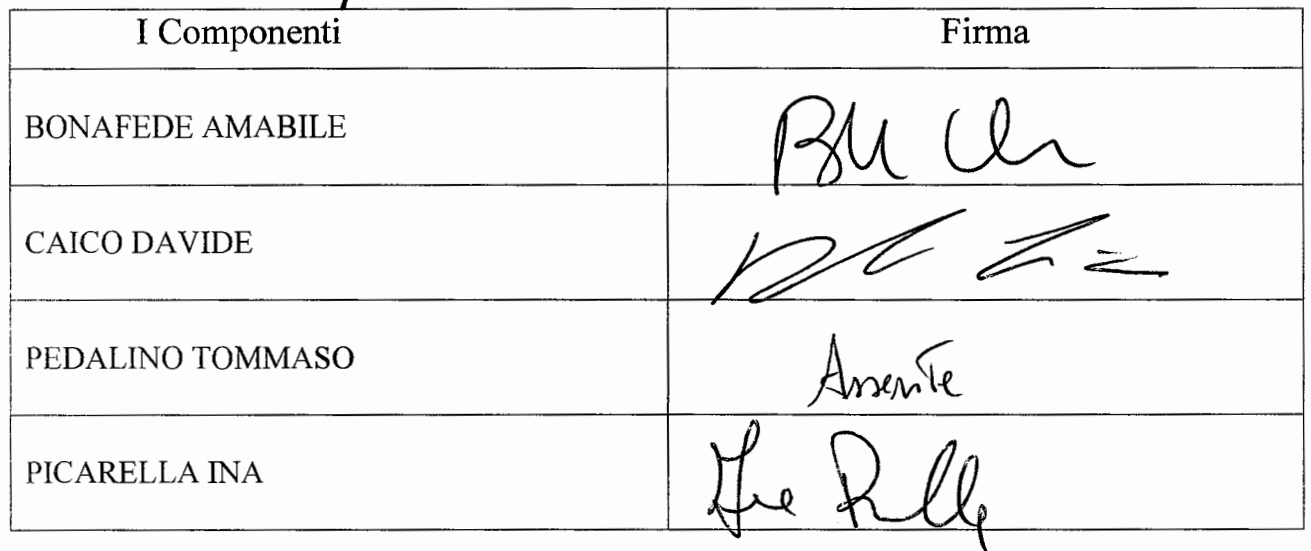 I Componenti Firma
BONAFEDE AMABILE
CAICO DAVIDE
PEDALINO TOMMASO Assente
PICARELLA INA